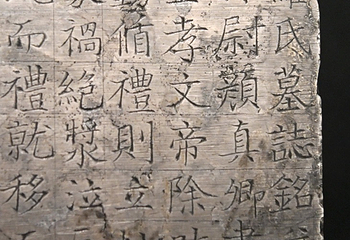 氏墓誌銘
尉顏真卿書
孝文帝除
脩禮則立
禍絕漿泣
而禮就移